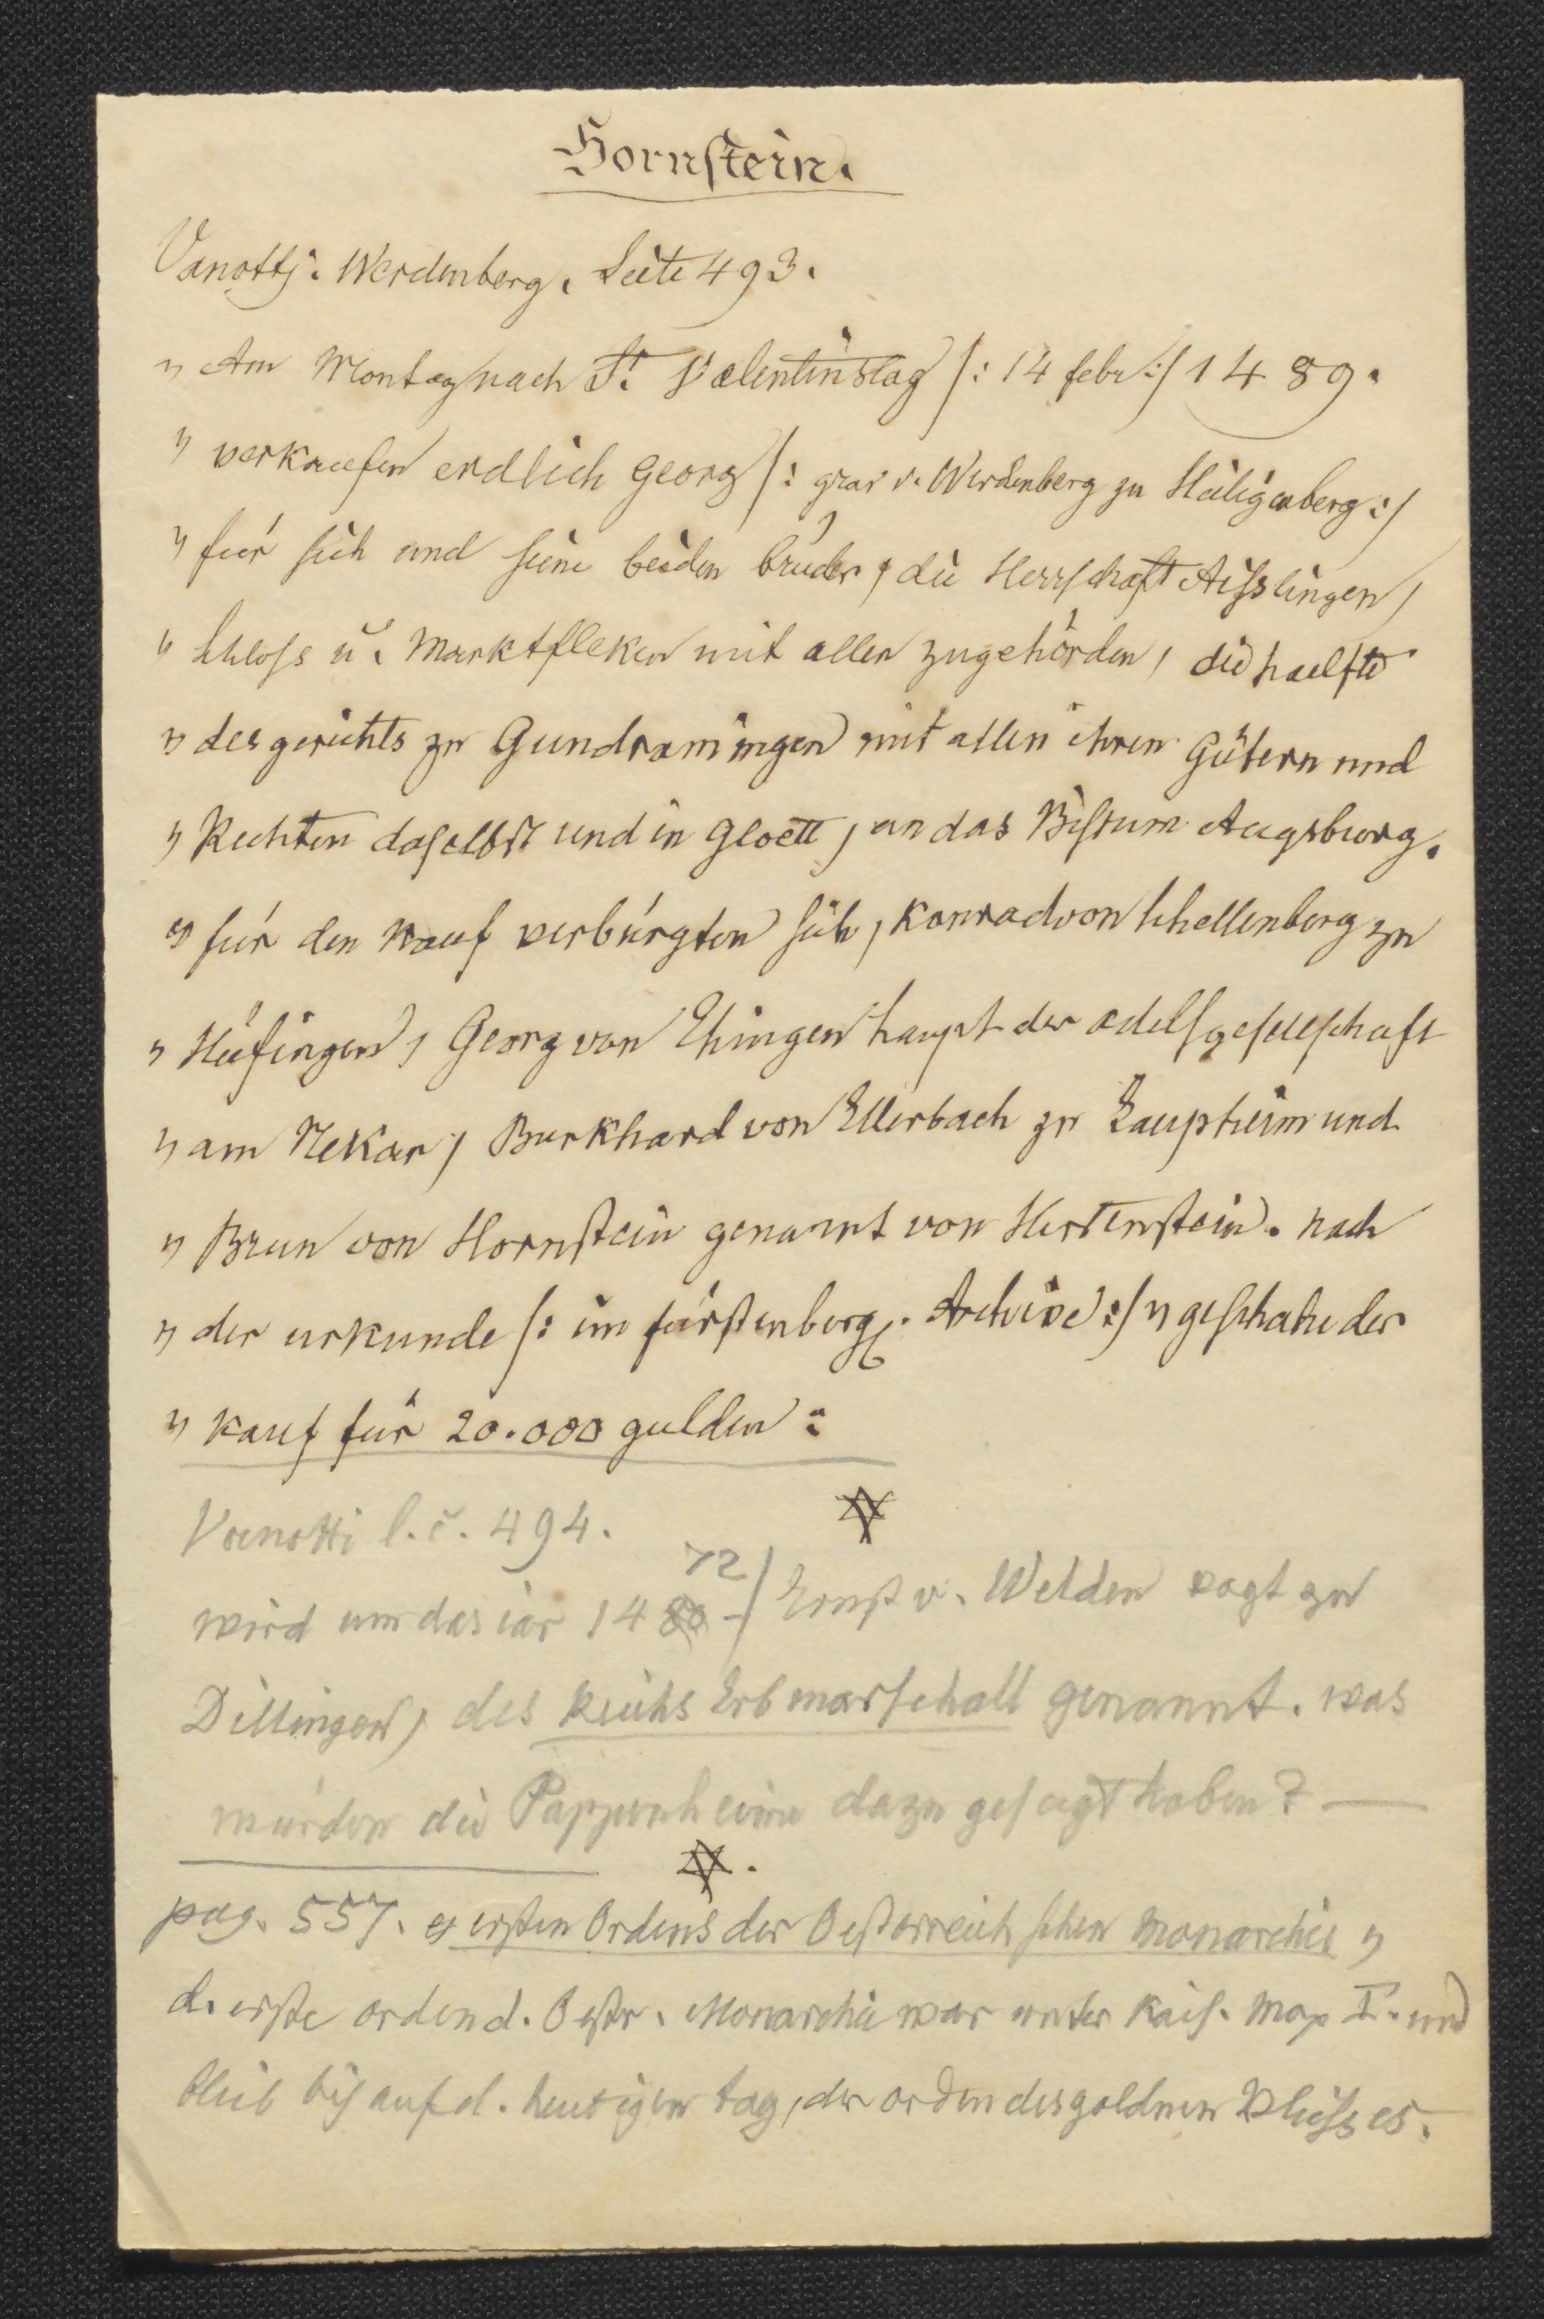 Hornstein.
Vanotti. Werdenberg. Seite 493.
" Am Montag nach St. Valentinstag /: 14 febr :/ 1489.
" verkaufen endlich Georg /: grav v. Werdenberg zu Heiligenberg :/
" für sich und seine beiden brüder, die Herrschaft Aisslingen,
" schloss u. Marktfleken mit allen zugehörden, die haelfte
" des gerichts zu Gundramingen mit allen ihren Gütern und
" Rechten daselbst und in Gloett, an das Bistum Augsburg.
" für den kauf verbürgten sich, Konrad von Schellenberg zu
" Hüfingen, Georg von Ehingen haupt der adelsgesellschaft
" am Nekar, Burkhard von Ellerbach zu Laupheim und
" Brun von Hornstein genannt von Hertenstein. nach
" der urkunde /: im fürstenberg. Archive :/ " geschahe der
" kauf für 20.000 gulden :
Vanotti l. c. 494.
72
wird um das iar 1480 -/ Ernst v. Welden vogt zu
Dillingen, des Reichs Erbmarschall genannt. was
würden die Pappenheime dazu gesagt haben? —
pag. 557. " ersten Ordens der Oesterreichschen Monarchie "
d. erste orden d. Oestr. Monarchie war unter Kais. Max I. und
blieb bis auf d. heutigen tag, der orden des goldnen Vliesses.